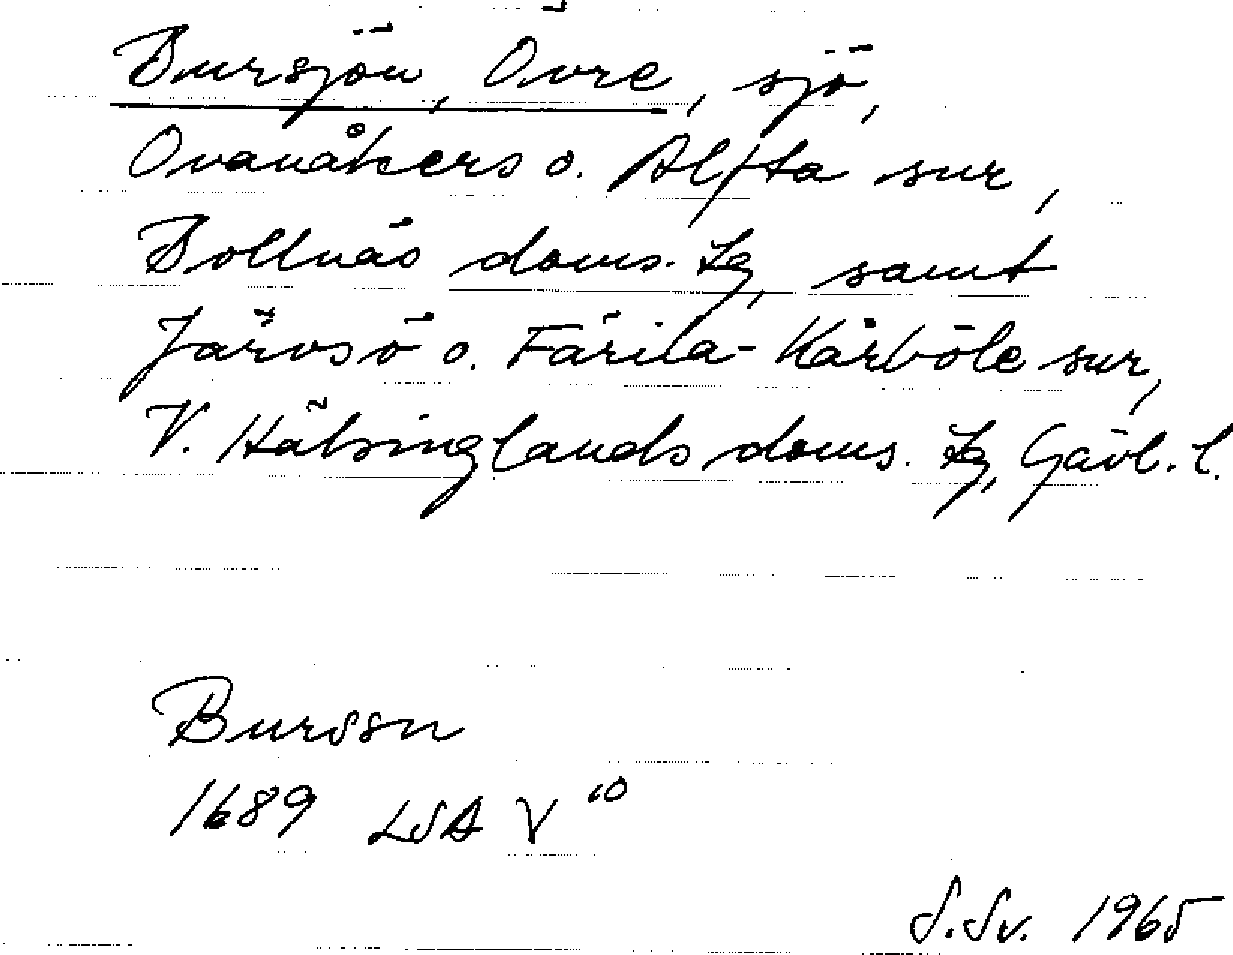 Bursjön, Övre, sjö,
Ovanåkers o. Alfta snr,
Bollnäs doms. tg, samt
Järvsö o. Färila-Kårböle snr,
V. Hälsinglands doms. tg, Gävl. l.
Burssn
1689 LSA V 10
S.Sv. 1965